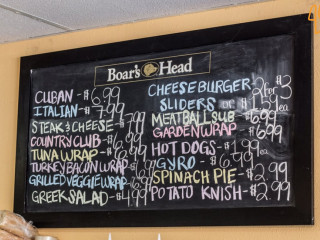 Boar's Head
CUBAN - $6.99
ITALIAN - $7.99
STEAK & CHEESE - $7.99
COUNTRY CLUB - $
TUNA WRAP - $6.99
TURKEY BACON WRAP
GRILLED VEGGIE WRAP $6.99
GREEK SALAD - $4.99
CHEESEBURGER 2 for $3
SLIDERS OR ea
MEATBALL SUB - 6.99
GARDEN WRAP - $6.99
HOT DOGS - 1.99 ea
GYRO - $6.99
SPINACH PIE - $2.99
POTATO KNISH - $2.99